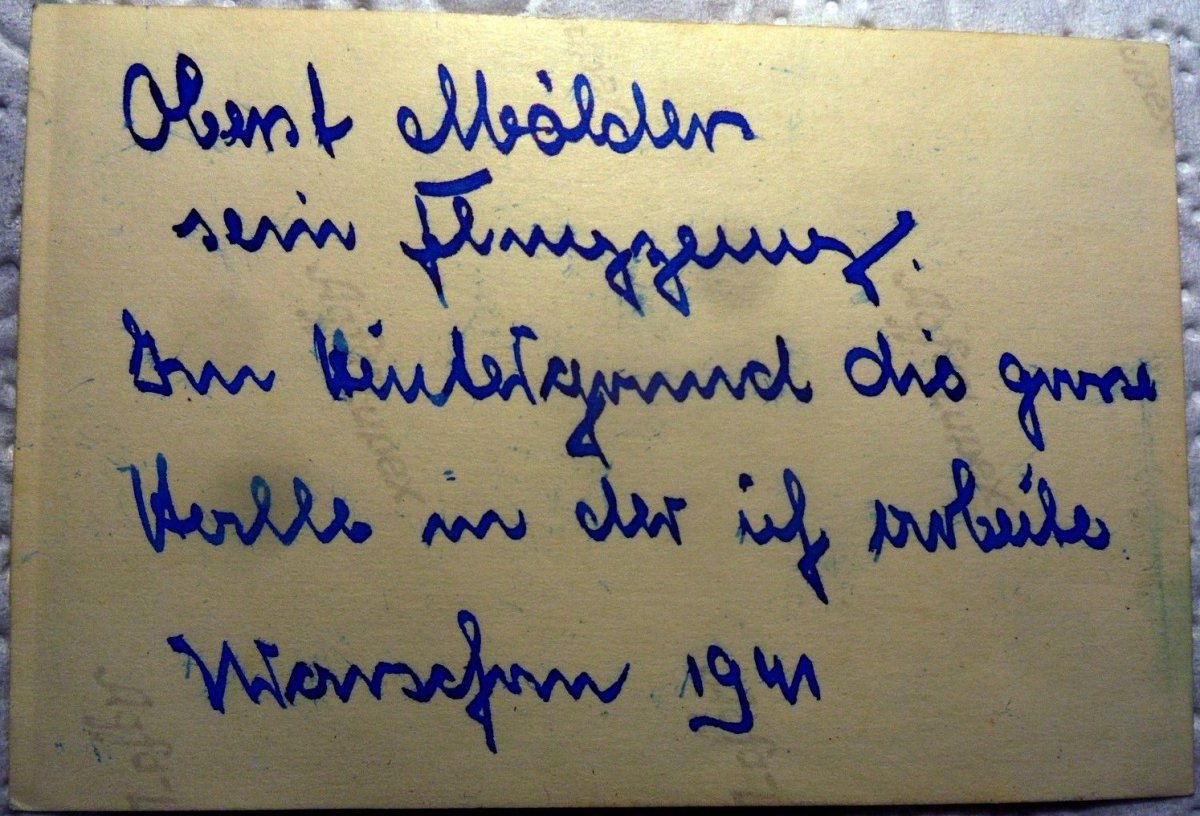 Oberst Mölders
sein Flugzeug.
Im Hintergrund die grosse
Halle in der ich arbeite
Warschau 1941